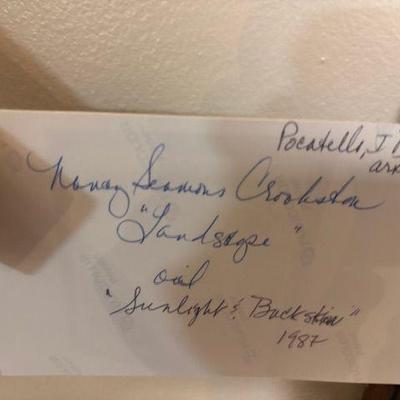 Pocatello, I
Nancy Seamons Crookston
"Landscape"
oil
"Sunlight & Buckskin"
1987